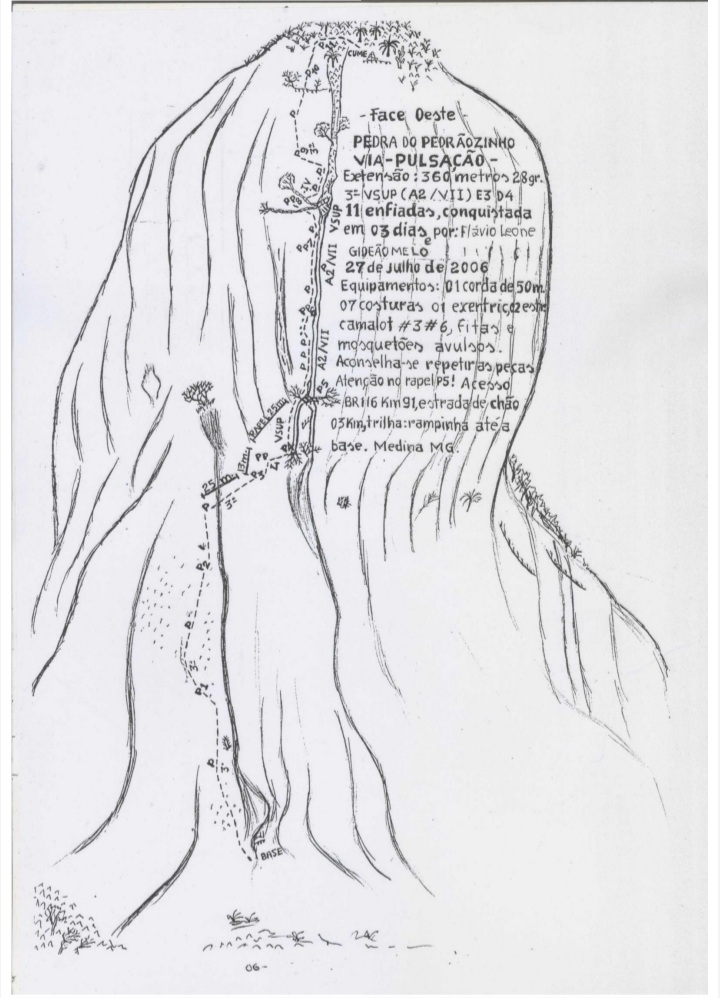 CUME
- Face Oeste -
PEDRA DO PEDRÃOZINHO
VIA - PULSAÇÃO -
Extensão: 360 metros 28gr.
3º VSUP (A2/VII) E3 D4
11 enfiadas, conquistada
em 03 dias por: Flávio Leone
e
GIDEÃO MELO
27 de Julho de 2006
Equipamentos: 01 corda de 50m.
07 costuras 01
camalot #3 #6, fitas e
mosquetões avulsos.
Aconselha-se repetir as peças
Atenção no rapel P5! Acesso
BR116 Km 91, estrada de chão
03Km, trilha: rampinha até a
base. Medina MG.
3º
IV
A2/VII VSUP
A2/VII
P5
VSUP
25m
13m
25 m
3º
3º
P1
3º
BASE
06-